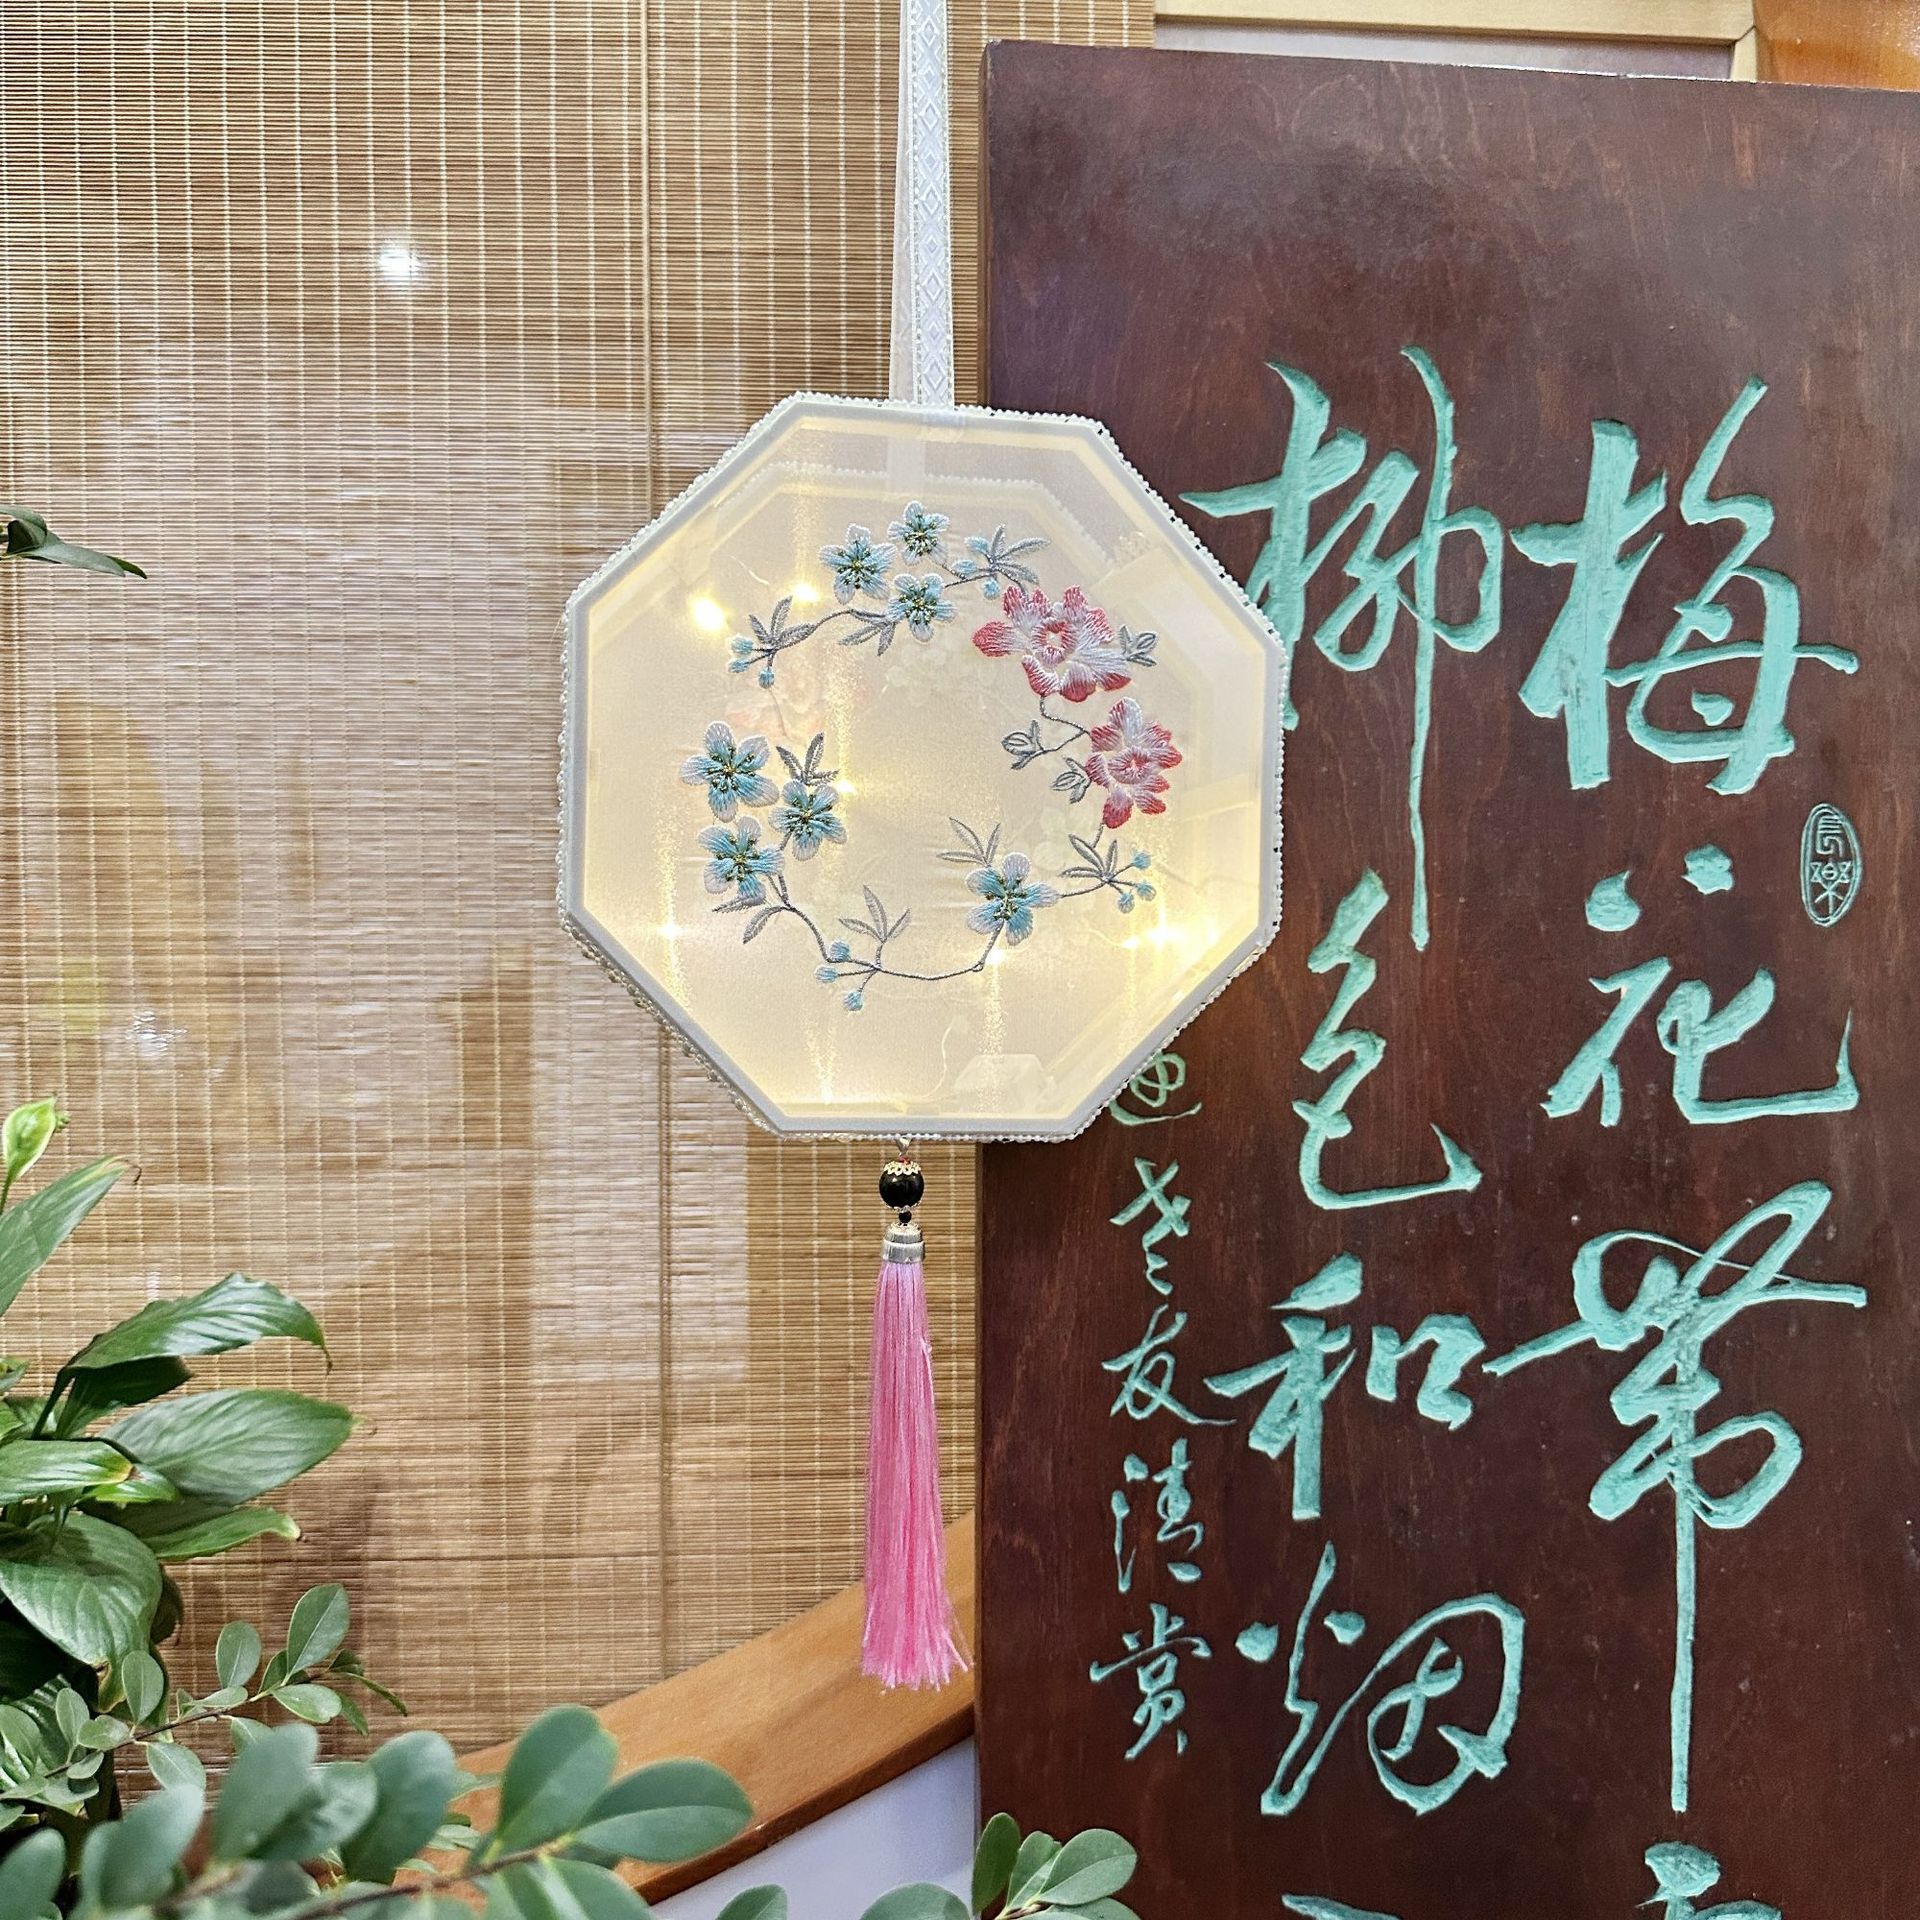 梅花带
柳色和烟
迎老友清赏